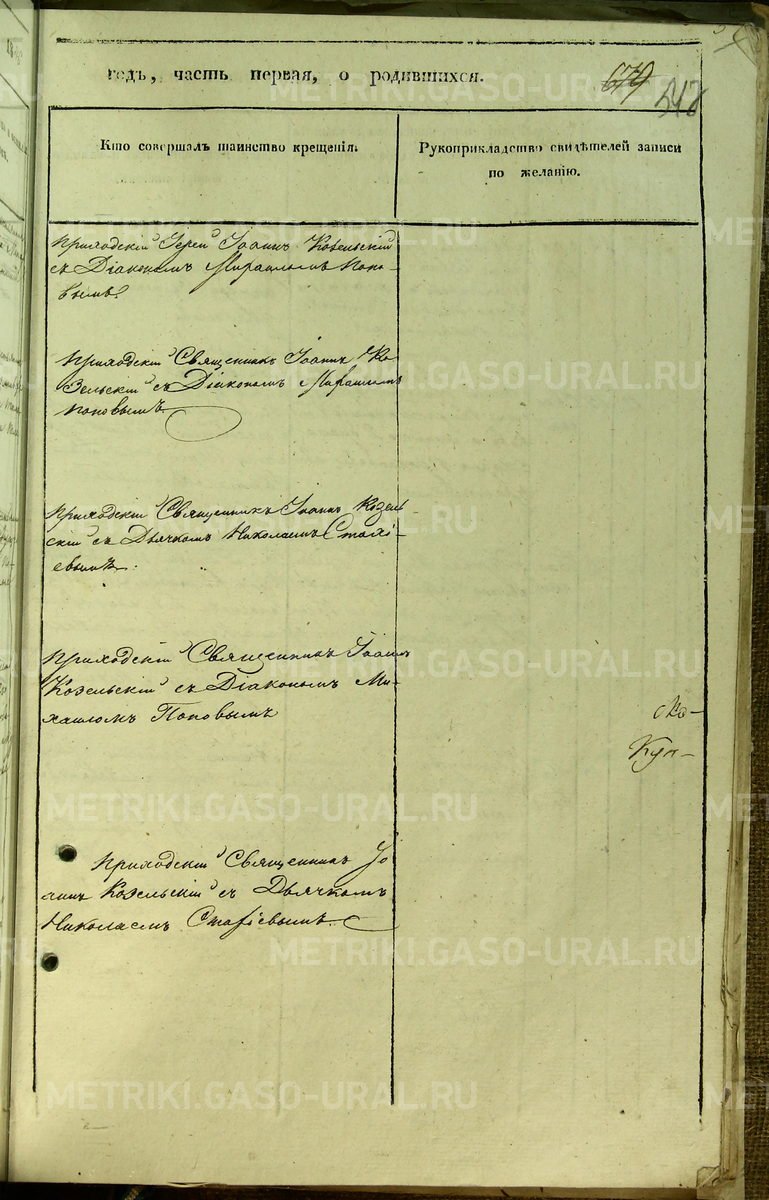 годъ, часть первая, о родившихся.
679
Кто совершалъ таинство крещенія.
Рукоприкладство свидѣтелей записи
по желанію.
Приходскій Іерей Іоаннъ Козельскій
съ Діакономъ Михаиломъ Попо-
вымъ.
Приходскій Священникъ Іоаннъ Ко
зельскій съ Діакономъ Михаиломъ
Поповымъ
Приходскій Священникъ Іоаннъ Козель
скій съ Дьячкомъ Николаемъ
Приходскій Священникъ Іоаннъ
Козельскій съ Діакономъ Ми-
хаиломъ Поповымъ
Куп-
Приходскій Священникъ Іо
аннъ Козельскій съ Дьячкомъ
Николаемъ
METRIKI.GASO-URAL.RU